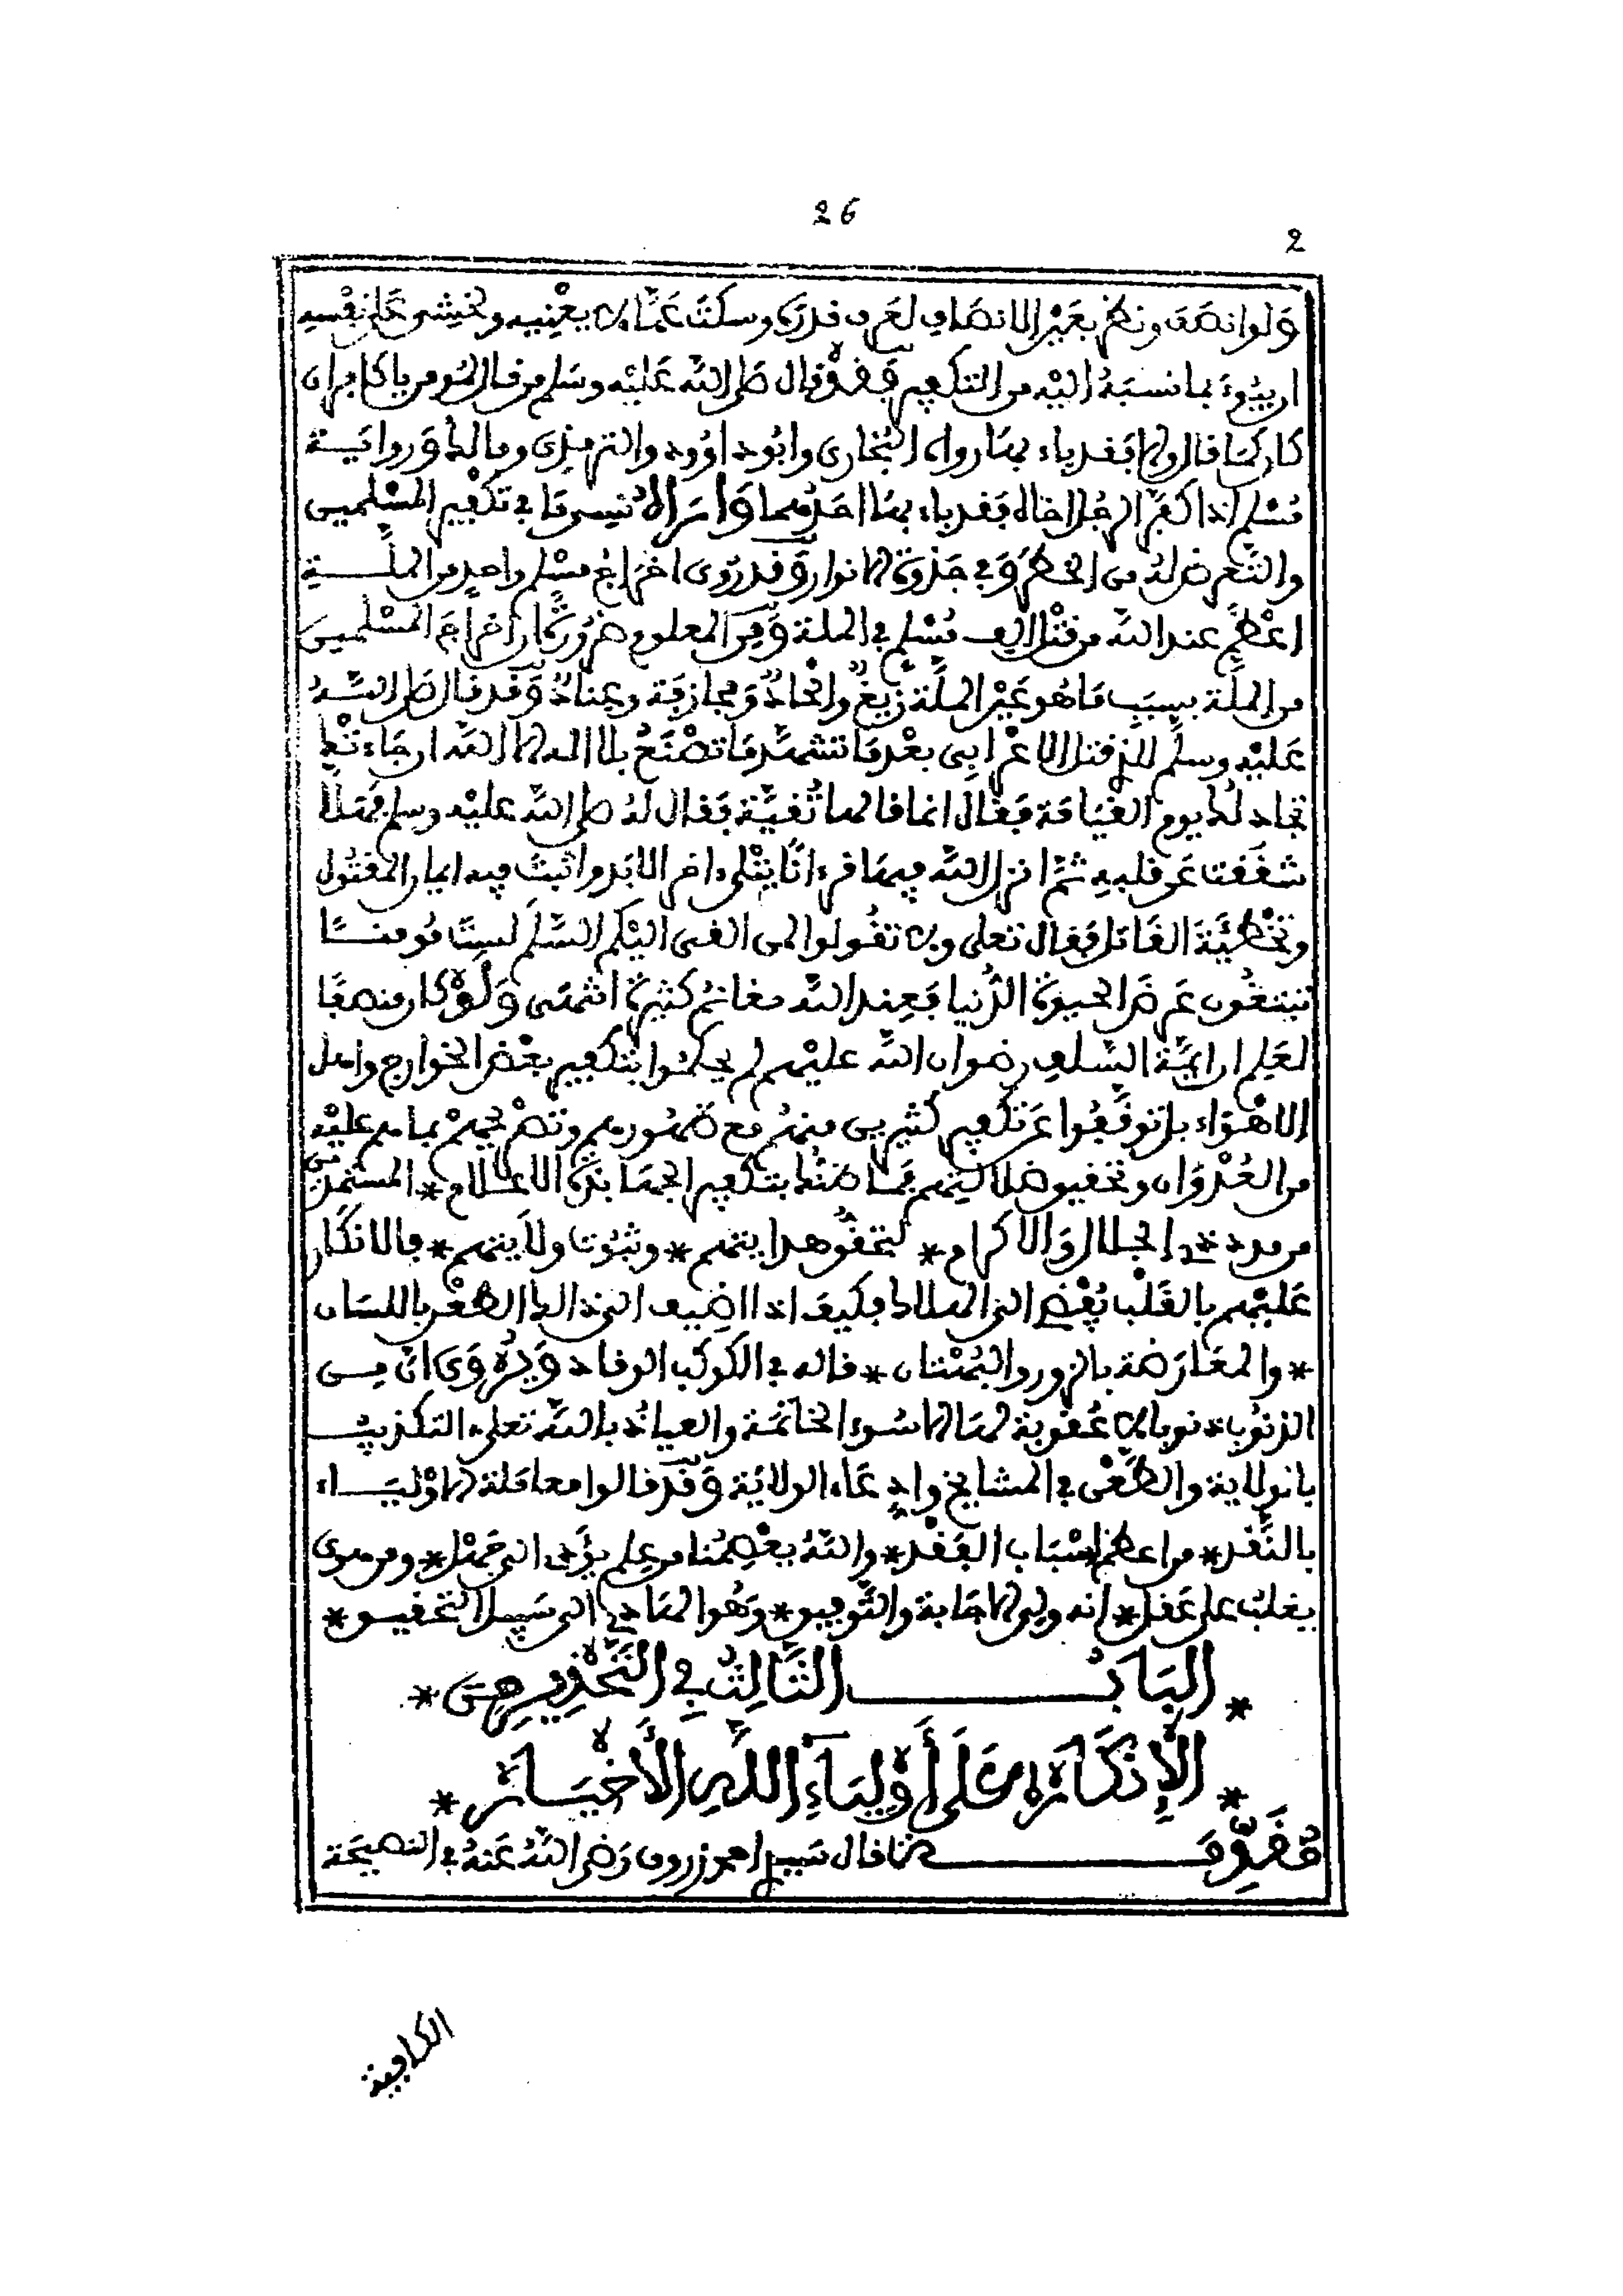 26
2
ولو انصف ونظر بعين الانصاف لعرف قدره وسكت عما لا يعنيه وخشي على نفسه
ان يبوء بما نسبه اليه من التكفير فقد قال صلى الله عليه وسلم من قال لمومن يا كافر ان
كان كما قال والا فقد باء بها رواه البخاري وابوداوود والترمذي ومالك وروايـــة
مسلم اذا كفر الرجل اخاه فقد باء بها احدهما وانت لا تنس ما في تكفير المسلمين
والتعرض له من الخطر وفي جذوة الانوار وقد روي اخراج مسلم واحد من الملـــة
اعظم عند الله من قتل الف مسلم في الملة ومن المعلوم ضرورة ان اخراج المسلمين
من الملة بسبب ما هو غير الملة زيغ والحاد ومجازفة وعناد وقد قال صلى اللـــه
عليه وسلم للذي قتل الاعرابي بعد ما تشهد ما تصنع بلا اله الا الله ان جاءت
تجادلك يوم القيامة فقال انما قالها تقية فقال له صلى الله عليه وسلم فهلا
شققت عن قلبه ثم انزل الله فيها قرءانا يتلى ءاخر الابد واثبت فيه ايمان المقتول
وتخطيئة القاتل فقال تعلى ولا تقولوا لمن القى اليكم السلم لست مومنـــا
تبتغون عرض الحيوة الدنيا فعند الله مغانم كثيرة انتهى ولو كان منصفا
لعلم ان ايمة السلف رضوان الله عليهم لم يحكموا بتكفير بعض الخوارج واهل
الاهواء بل توقفوا عن تكفير كثيرين منهم مع ظهورهم وتصريحهم بما هم عليه
من العدوان وتحقيق ضلالتهم فما ظنك بتكفير الجهابذة الاعلام * المستمدين
من مدد ذي الجلال والاكرام * لتحقق هدايتهم * وثبوت ولايتهم * فالانكار
عليهم بالقلب يفضي الى الهلاك فكيف اذا اضيف الى ذالك الطعن باللسان
* والمعارضة بالزور والبهتان * قاله في الكوكب الوقاد ويروى ان مـــن
الذنوب ذنوبا لا عقوبة لها الا سوء الخاتمة والعياذ بالله تعلى التكذيب
بالولاية والطعن في المشايخ وادعاء الولاية وقد قالوا معاملة الاوليـــاء
بالنقد * من اعظم اسباب الفقد * والله يعصمنا من علم يؤدي الى جهل * ومن هوى
يغلب على عقل * انه ولي الاجابة والتوفيق * وهو الهادي الى سبيل التحقيـــق *
* البـــاب الثالث في التحذير من *
* الانكار على أولياء الله الأخيـــار *
مقدمـــة قال سيدي احمد زروق رضي الله عنه في النصيحة
الكافية